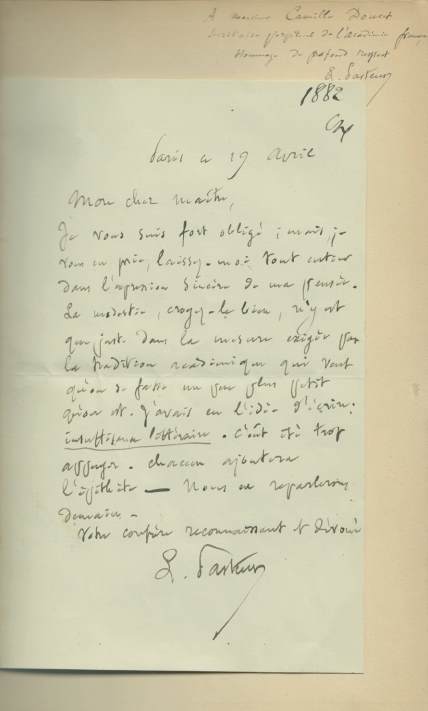 A monsieur Camille Doucet
Secrétaire perpétuel de l'académie franç
Hommage de profond respect
L. Pasteur
1882
Paris ce 19 avril
Mon cher maître,
Je vous suis fort obligé ; mais, je
vous en prie, laissez-moi tout entier
dans l'expression sincère de ma pensée.
La modestie, croyez-le bien, n'y est
que juste dans la mesure exigée par
la tradition académique qui veut
qu'on se fasse un peu plus petit
qu'on est. J'avais eu l'idée d'écrire :
insuffisance littéraire. C'eût été trop
appuyer. Chacun ajoutera
l'épithète — Nous en reparlerons
demain —
Votre confrère reconnaissant et dévoué
L. Pasteur